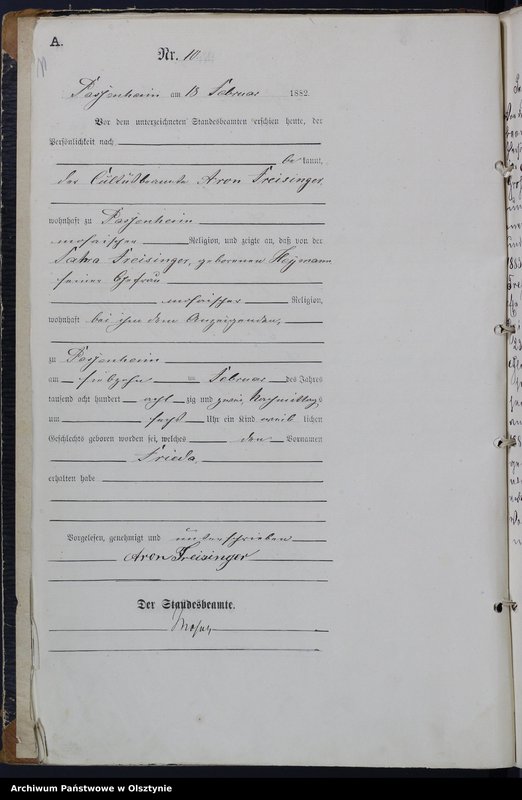 A.
Nr. 10
Passenheim am 18 Februar 1882.
Vor dem unterzeichneten Standesbeamten erschien heute, der
Persönlichkeit nach
be kannt,
der Cultusbeamte Aron Freisinger,
wohnhaft zu Passenheim
mosaischer Religion, und zeigte an, daß von der
Freisinger, geborenen Heymann
seiner Ehefrau
mosaischer Religion,
wohnhaft bei ihm dem Anzeigenden,
zu Passenheim
am siebzehn ten Februar des Jahres
tausend acht hundert acht zig und zwei, Nachmittags
um sechs Uhr ein Kind weib lichen
Geschlechts geboren worden sei, welches den Vornamen
Frieda
erhalten habe
Vorgelesen, genehmigt und unterschrieben
Aron Freisinger
Der Standesbeamte.
Archiwum Państwowe w Olsztynie